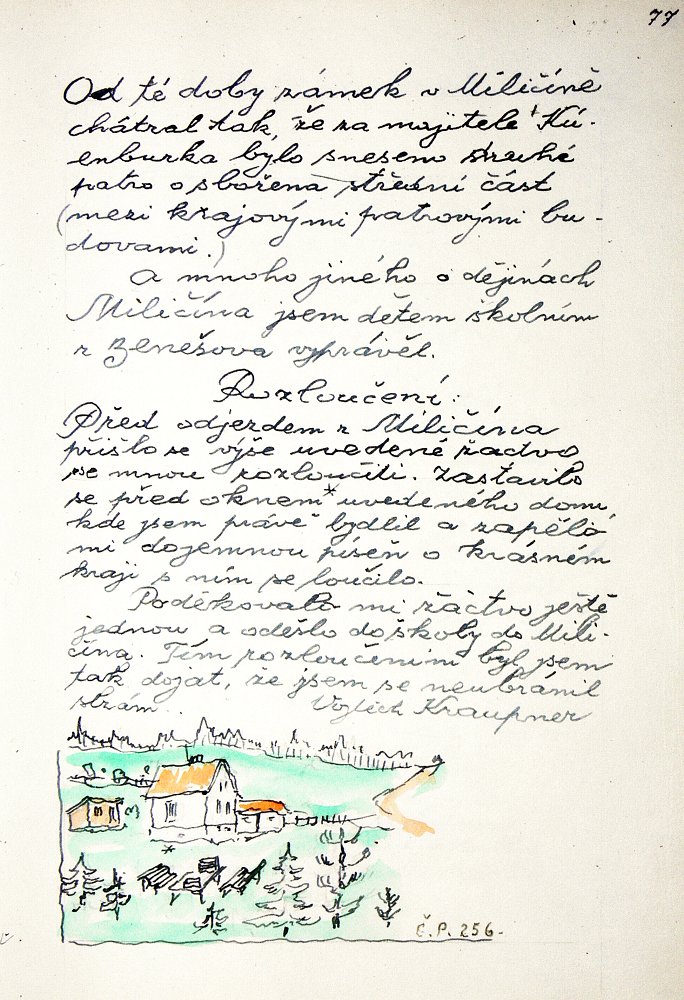 77
Od té doby zámek v Miličíně
chátral tak, že za majitele Kü-
enburka bylo sneseno druhé
patro a sbořena střední část
(mezi krajovými patrovými bu-
dovami.)
A mnoho jiného o dějinách
Miličína jsem dětem školním
z Benešova vyprávěl.
Rozloučení:
Před odjezdem z Miličína
přišlo se výše uvedené žactvo
se mnou rozloučiti. Zastavilo
se před oknem* uvedeného domu,
kde jsem právě bydlil a zapělo
mi dojemnou píseň o krásném
kraji s ním se loučilo.
Poděkovalo mi žáctvo ještě
jednou a odešlo do školy do Mili-
čína. Tím rozloučením byl jsem
tak dojat, že jsem se neubránil
slzám.. Vojtěch Kraupner
*
Č.P. 256.